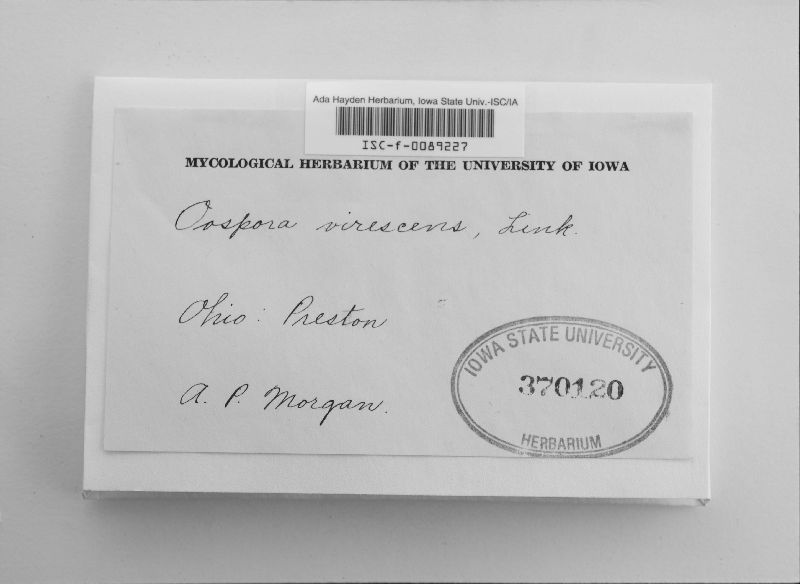 Ada Hayden Herbarium, Iowa State Univ.-ISC/IA
ISC-f-0089227
MYCOLOGICAL HERBARIUM OF THE UNIVERSITY OF IOWA
Oospora virescens, Link.
Ohio: Preston
A. P. Morgan.
IOWA STATE UNIVERSITY
370120
HERBARIUM